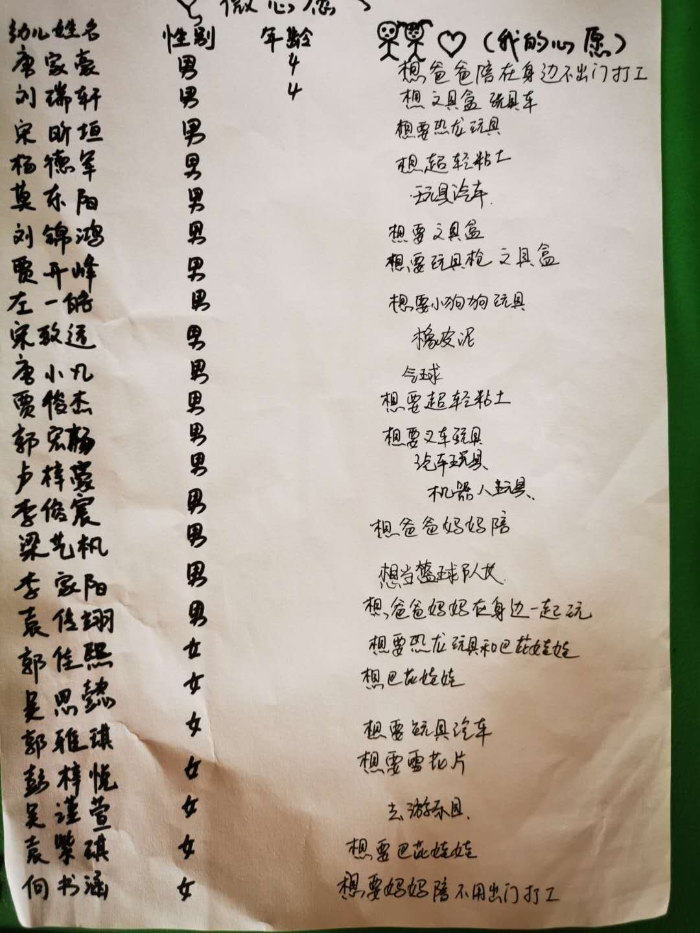 微心愿
幼儿姓名 性别 年龄 (我的心愿)
唐家豪 男 4 想爸爸陪在身边不出门打工
刘瑞轩 男 4 想文具盒 玩具车
宋昕垣 男 想要恐龙玩具
杨德军 男 想超轻粘土
莫东阳 男 玩具汽车
刘锦鸿 男 想要文具盒
贾开峰 男 想要玩具枪 文具盒
左一 男 想要小狗狗玩具
宋致远 男 橡皮泥
唐小凡 男 气球
贾俊杰 男 想要超轻粘土
郭宏杨 男 想要叉车玩具
卢梓豪 男 汽车玩具
李俊宸 男 机器人玩具
梁艺枫 男 想爸爸妈妈陪
李家阳 男 想当篮球队长
袁佳翊 男 想爸爸妈妈在身边一起玩
郭佳熙 女 想要恐龙玩具和巴芘娃娃
吴思懿 女 想巴芘娃娃
郭雅琪 女 想要玩具汽车
彭梓悦 女 想要雪花片
吴谨萱 女 去游乐园
袁紫琪 女 想要巴芘娃娃
何书涵 女 想要妈妈陪不用出门打工